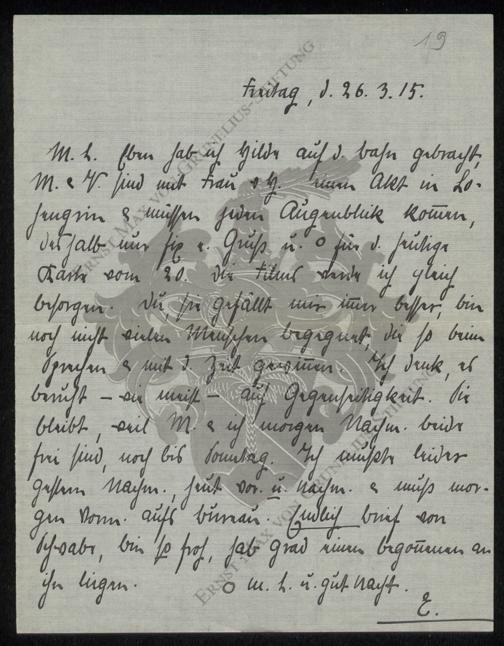 19
Freitag, d. 26. 3. 15.
M. L. Eben hab ich Hilde auf d. bahn gebracht,
M. & V. sind mit Frau v. H. einen Akt in Lo-
hengrin & müssen jeden Augenblick kommen,
deshalb nur fix e. Gruß u. O für d. heutige
Karte vom 20. Die Films werde ich gleich
besorgen. Du, sie gefällt mir immer besser, bin
noch nicht vielen Menschen begegnet, die so beim
Sprechen & mit d. Zeit gewinnen. Ich denk, es
beruht – wie meist – auf Gegenseitigkeit. Sie
bleibt, weil M. & ich morgen Nachm. beide
frei sind, noch bis Sonntag. Ich mußte leider
gestern Nachm., heut vor. u. Nachm. & muß mor-
gen Vorm. aufs bureau. Endlich brief von
Schwabe, bin so froh, hab grad einen begonnenen an
ihn liegen. O m. L. u. gut Nacht.
E.
ERNST MAX VON GRUNELIUS-STIFTUNG
ERNST MAX VON GRUNELIUS-STIFTUNG